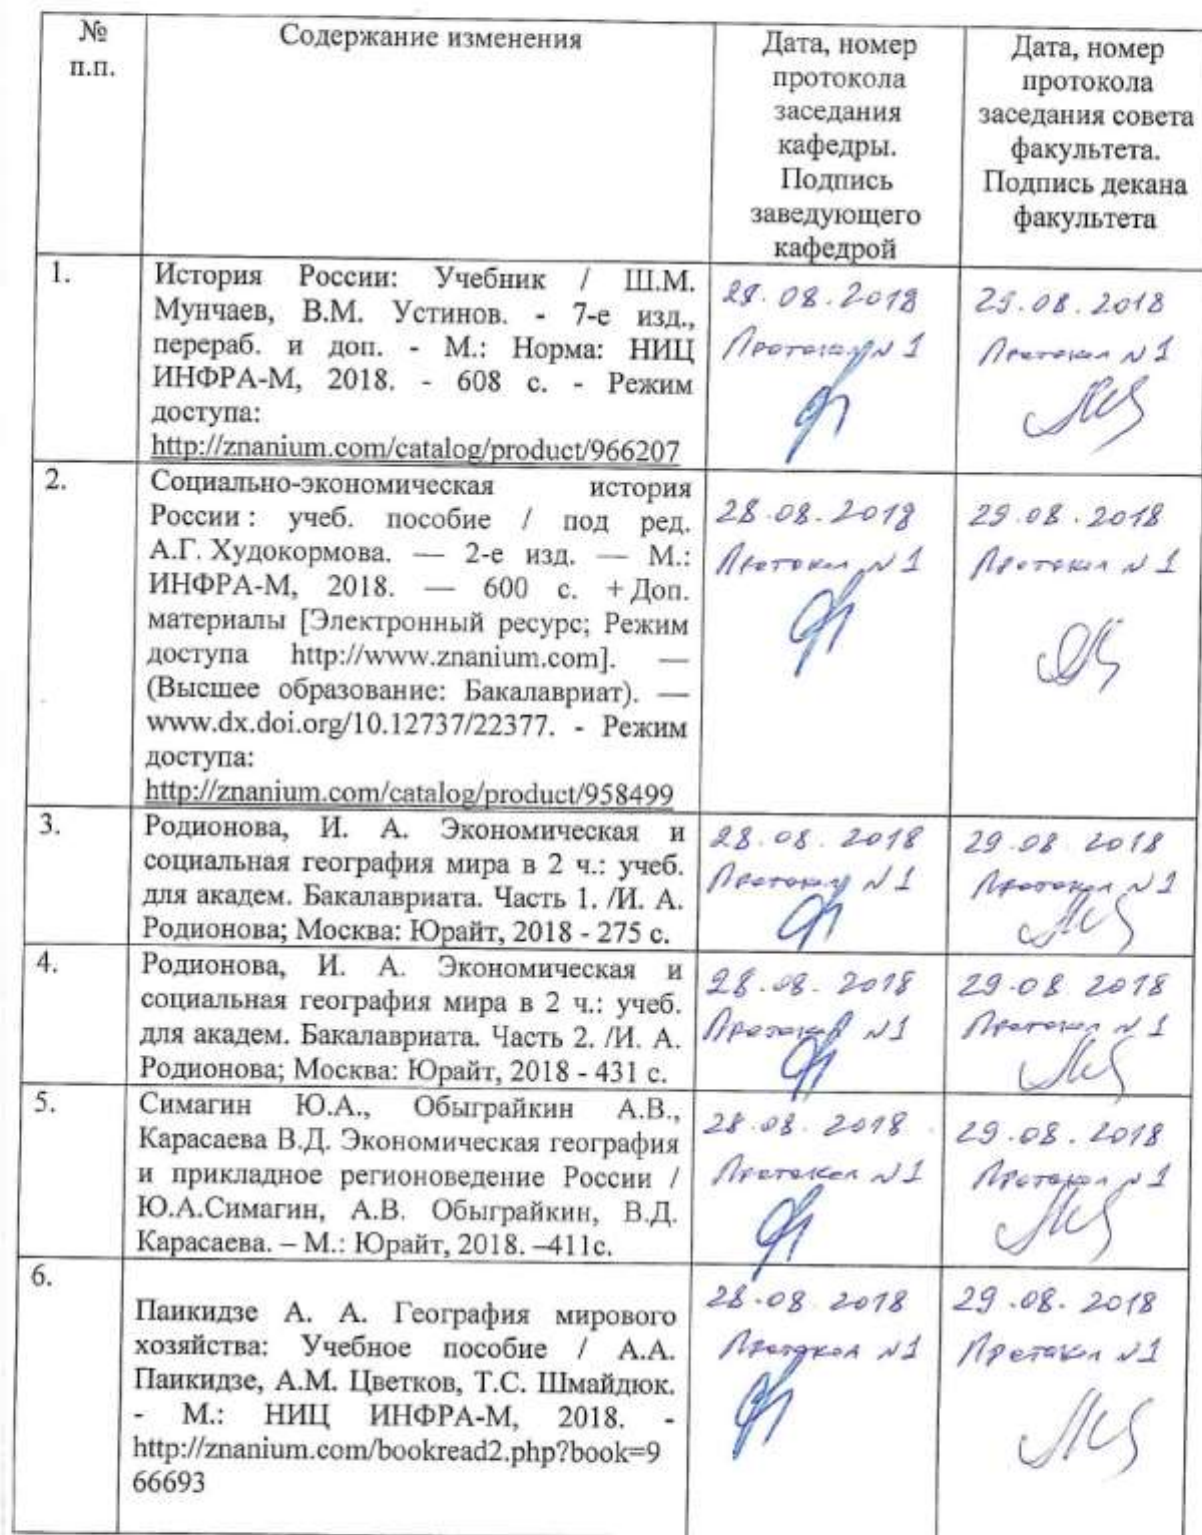 №
п.п.
Содержание изменения
Дата, номер
протокола
заседания
кафедры.
Подпись
заведующего
кафедрой
Дата, номер
протокола
заседания совета
факультета.
Подпись декана
факультета
1.
История России: Учебник / Ш.М.
Мунчаев, В.М. Устинов. - 7-е изд.,
перераб. и доп. - М.: Норма: НИЦ
ИНФРА-М, 2018. - 608 с. - Режим
доступа:
http://znanium.com/catalog/product/966207
28.08.2018
Протокол №1
29.08.2018
Протокол №1
2.
Социально-экономическая история
России : учеб. пособие / под ред.
А.Г. Худокормова. — 2-е изд. — М.:
ИНФРА-М, 2018. — 600 с. + Доп.
материалы [Электронный ресурс; Режим
доступа http://www.znanium.com]. —
(Высшее образование: Бакалавриат). —
www.dx.doi.org/10.12737/22377. - Режим
доступа:
http://znanium.com/catalog/product/958499
28.08.2018
Протокол №1
29.08.2018
Протокол №1
3.
Родионова, И. А. Экономическая и
социальная география мира в 2 ч.: учеб.
для академ. Бакалавриата. Часть 1. /И. А.
Родионова; Москва: Юрайт, 2018 - 275 с.
28.08.2018
Протокол №1
29.08.2018
Протокол №1
4.
Родионова, И. А. Экономическая и
социальная география мира в 2 ч.: учеб.
для академ. Бакалавриата. Часть 2. /И. А.
Родионова; Москва: Юрайт, 2018 - 431 с.
28.08.2018
Протокол №1
29.08.2018
Протокол №1
5.
Симагин Ю.А., Обыграйкин А.В.,
Карасаева В.Д. Экономическая география
и прикладное регионоведение России /
Ю.А.Симагин, А.В. Обыграйкин, В.Д.
Карасаева. – М.: Юрайт, 2018. –411с.
28.08.2018
Протокол №1
29.08.2018
Протокол №1
6.
Паикидзе А. А. География мирового
хозяйства: Учебное пособие / А.А.
Паикидзе, А.М. Цветков, Т.С. Шмайдюк.
- М.: НИЦ ИНФРА-М, 2018. -
http://znanium.com/bookread2.php?book=9
66693
28.08.2018
Протокол №1
29.08.2018
Протокол №1